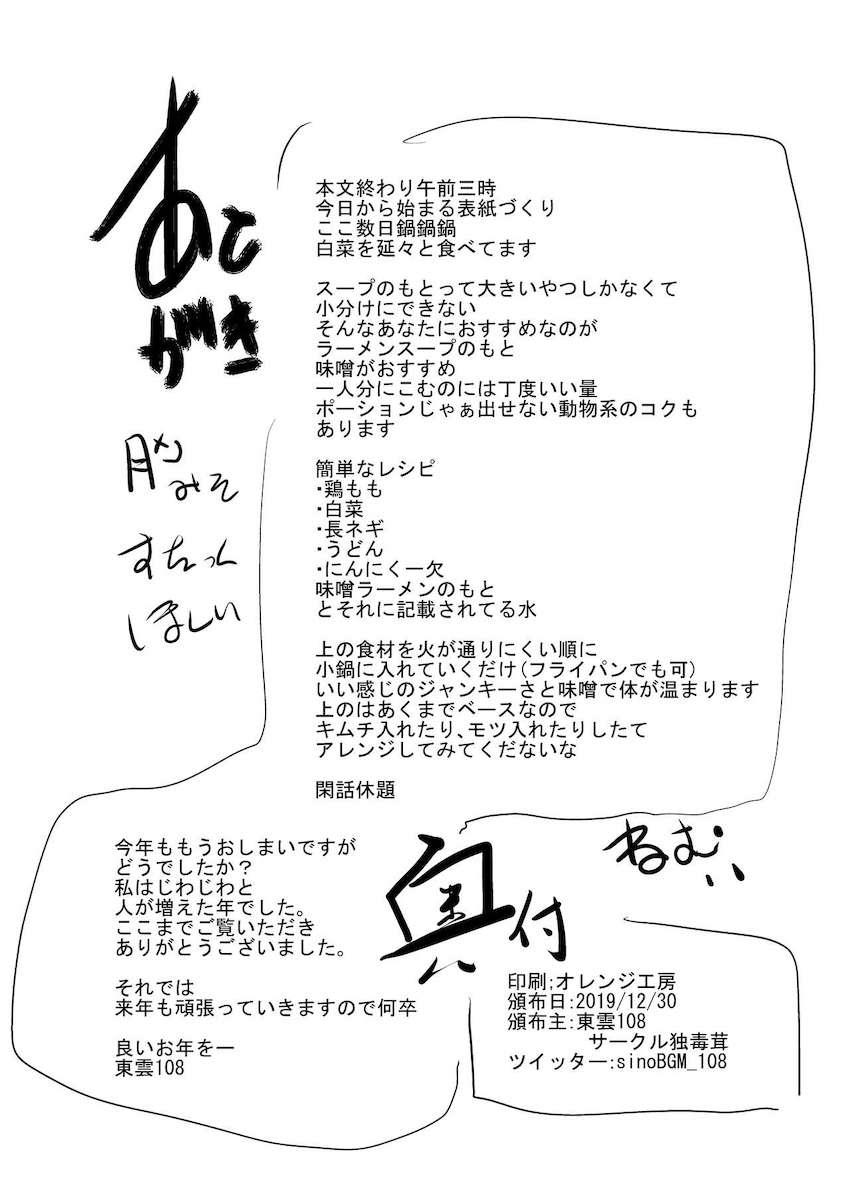 あとがき
本文終わり午前三時
今日から始まる表紙づくり
ここ数日鍋鍋鍋
白菜を延々と食べてます
スープのもとって大きいやつしかなくて
小分けにできない
そんなあなたにおすすめなのが
ラーメンスープのもと
味噌がおすすめ
一人分にこむのには丁度いい量
ポーションじゃぁ出せない動物系のコクも
あります
簡単なレシピ
・鶏もも
・白菜
・長ネギ
・うどん
・にんにく一欠
味噌ラーメンのもと
とそれに記載されてる水
上の食材を火が通りにくい順に
小鍋に入れていくだけ(フライパンでも可)
いい感じのジャンキーさと味噌で体が温まります
上のはあくまでベースなので
キムチ入れたり、モツ入れたりしたて
アレンジしてみてくだないな
閑話休題
みそ
ほしい
ねむい
今年ももうおしまいですが
どうでしたか？
私はじわじわと
人が増えた年でした。
ここまでご覧いただき
ありがとうございました。
それでは
来年も頑張っていきますので何卒
良いお年をー
東雲108
奥付
印刷:オレンジ工房
頒布日:2019/12/30
頒布主:東雲108
サークル独毒茸
ツイッター:sinoBGM_108